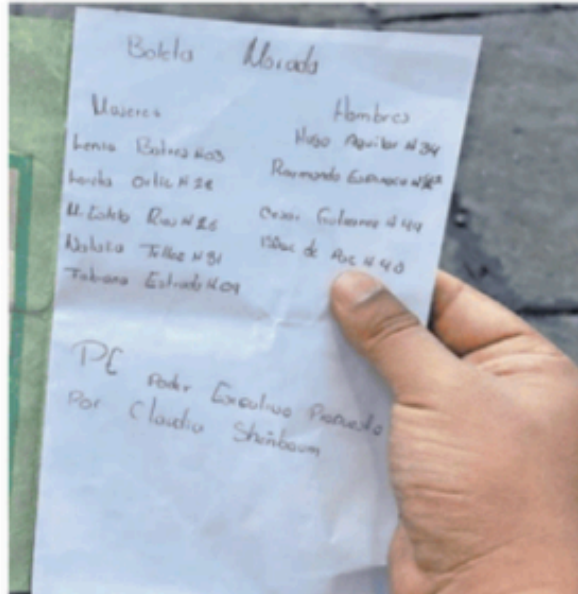 Boleta Morada
Mujeres
Lenia Batres #03
Loretta Ortiz #22
M. Estela Rios #26
Natalia Tellez #31
Fabiana Estrada #09
Hombres
Hugo Aguilar #34
Raimundo Espinoza
Cesar Gutierrez #44
Isaac de Paz #40
PE Poder Executivo Propuesto
Por Claudia Sheinbaum